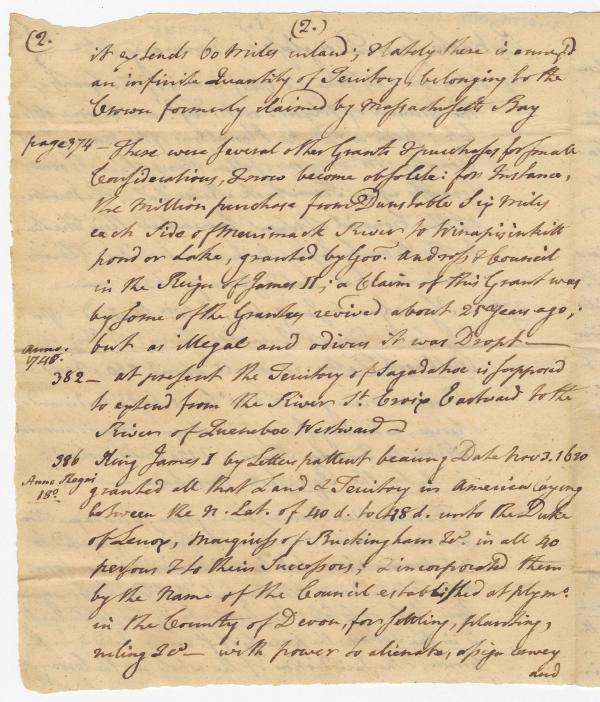 (2.
(2.)
it extends 60 Miles inland; & lately there is annex'd
an infinite Quantity of Territory, belonging to the
Crown formerly claimed by Massachusetts Bay
page 374 - There were several other Grants & purchases for small
Considerations, & now become obsolete: for Instance,
the Million purchase from Dunstable Six Miles
each Side of Merimack River to Winapisinkitt
pond or Lake, granted by Gov. Andross & Council
in the Reign of James II; a Claim of this Grant was
by some of the Grantees revived about 25 Years ago,
but as illegal and odious it was Dropt —
anno.
1748.
382 - at present the Territory of Sagadahoc is supposed
to extend from the River St. Croix Eastward to the
River of Quenebec Westward
386 King James I by Letters pattent bearing Date Nov 3. 1620
Anno Regni
18o
granted all that Land & Territory in America laying
between the N. Lat. of 40 d. to 48 d. unto the Duke
of Lenox, Marquiss of Buckingham &c. in all 40
persons & to their Successors; & incorporated them
by the Name of the Council established at Plymo.
in the County of Devon, for settling, planting,
ruling &c — with power to alienate, assign convey
and